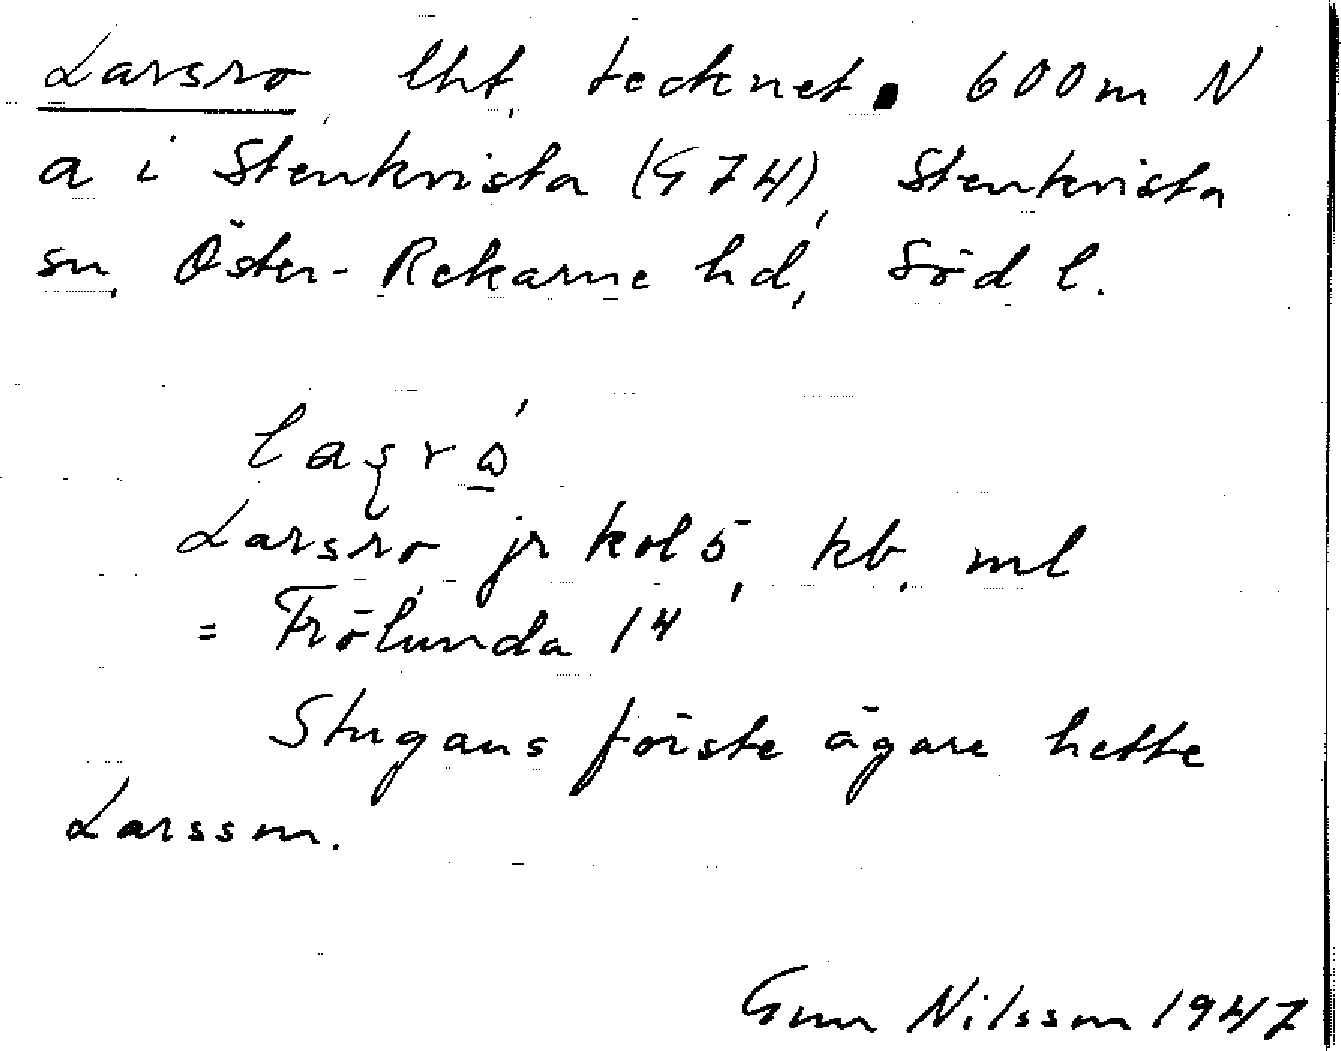 Larsro, lht, tecknet ▪ 600 m N
a i Stenkvista (G 74), Stenkvista
sn, Öster-Rekarne hd, Söd l.
Larsro jr kol 5, kb, ml
= Frölunda 14
Stugans förste ägare hette
Larsson.
Gun Nilsson 1947